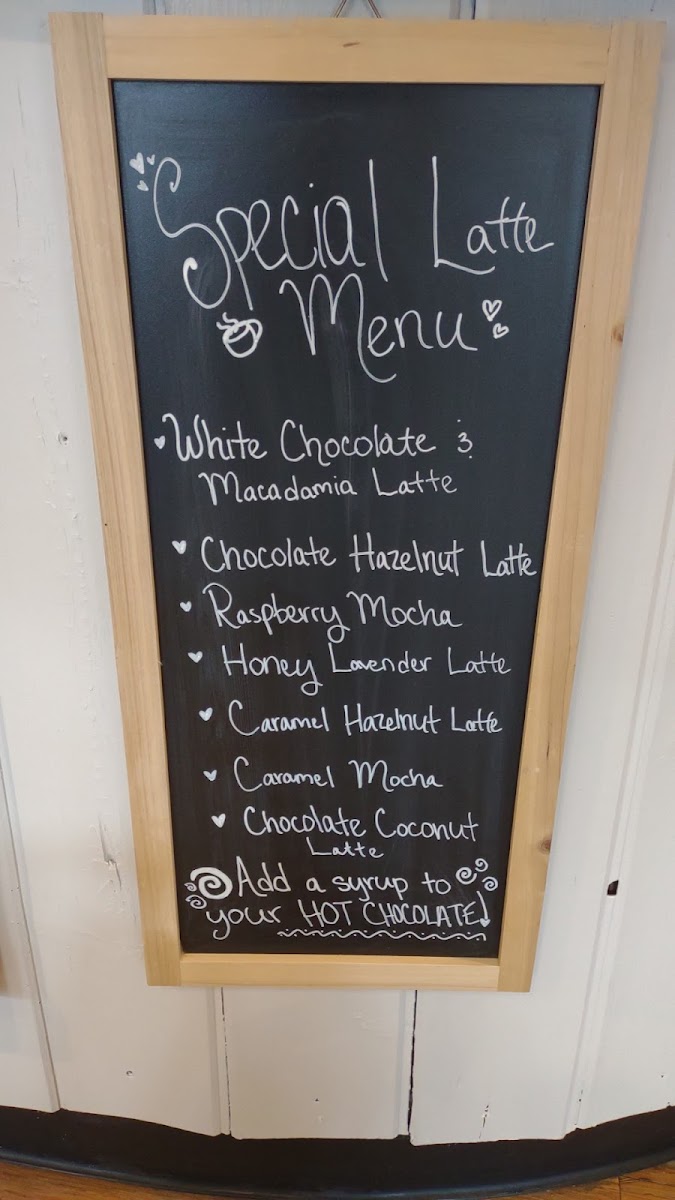 Special Latte
Menu
White Chocolate &
Macadamia Latte
Chocolate Hazelnut Latte
Raspberry Mocha
Honey Lavender Latte
Caramel Hazelnut Latte
Caramel Mocha
Chocolate Coconut
Latte
Add a syrup to
your HOT CHOCOLATE!